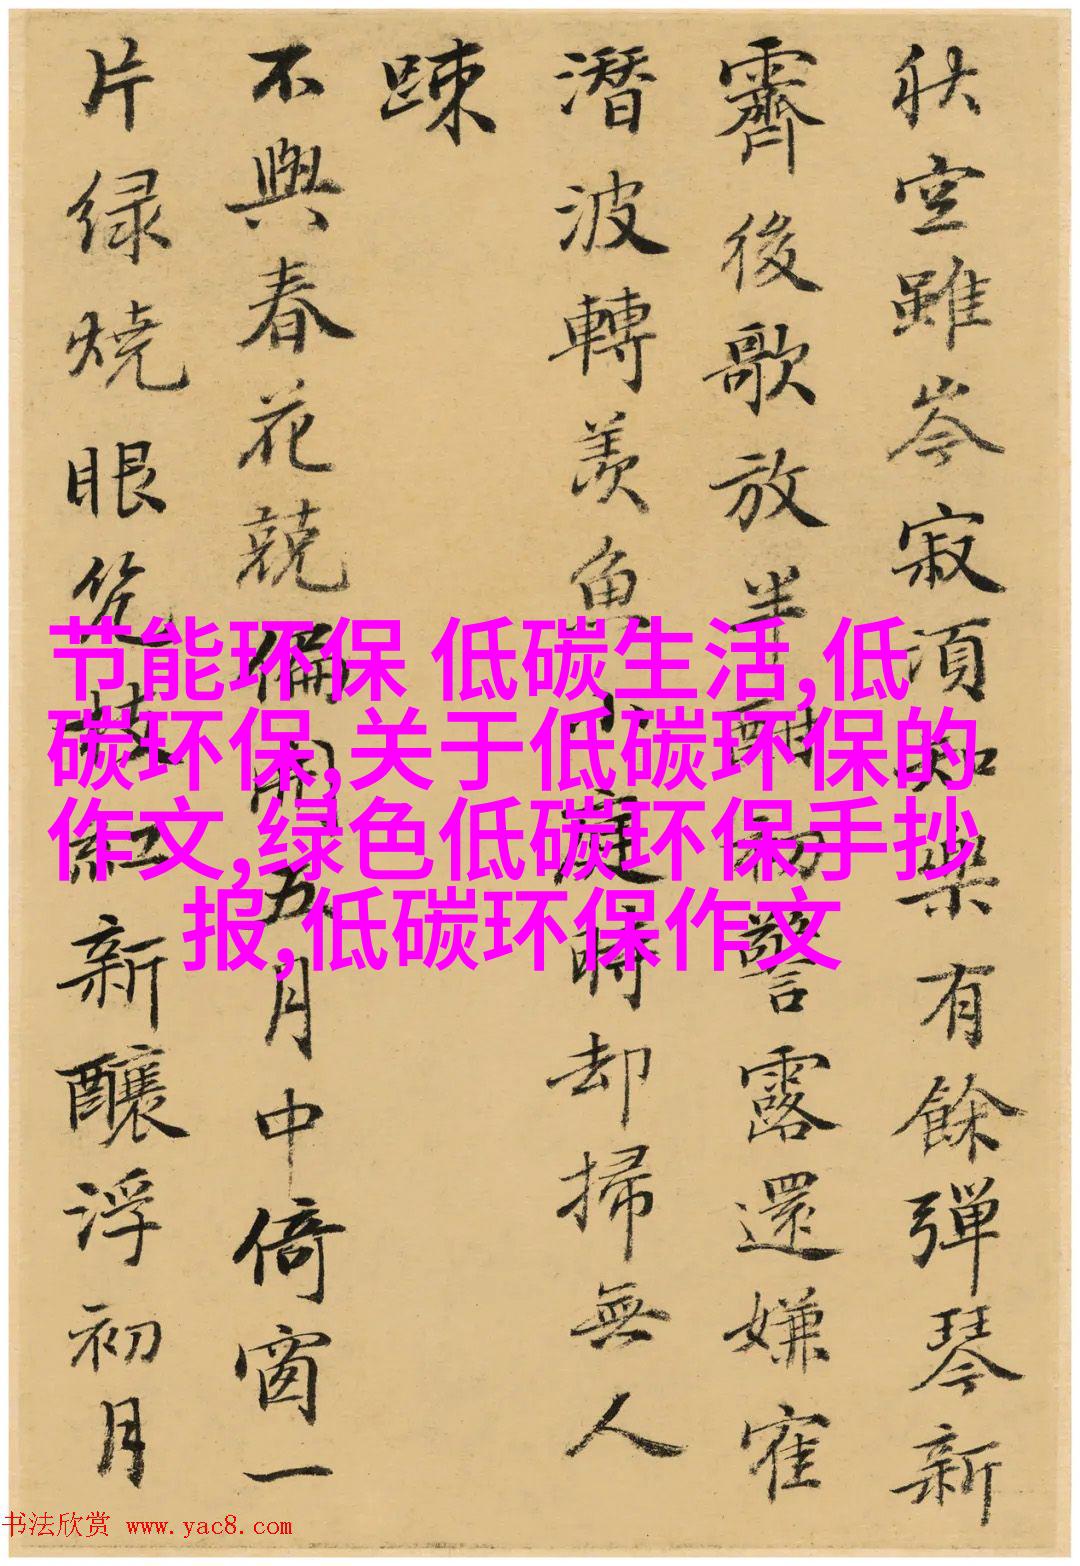 秋空雖岑寂須知樂有餘彈琴新
霽後歌放半酣初警露還嫌寉
潛波轉羨魚小庭時却掃無人
踈
不與春花競偏開五月中倚窗一
片緑燒眼枝紅新釀浮初月
节能环保 低碳生活,低
碳环保,关于低碳环保的
作文,绿色低碳环保手抄
报,低碳环保作文
书法欣赏 www.yac8.com